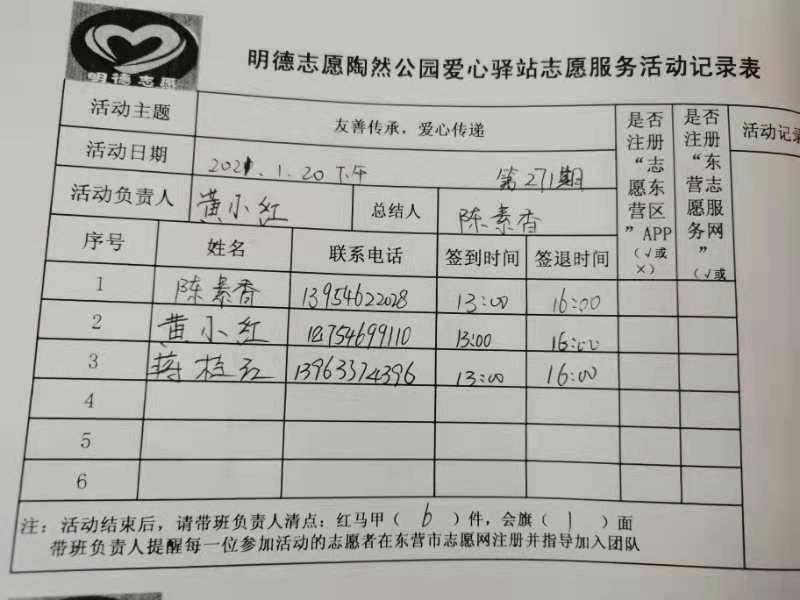 明德志愿
明德志愿陶然公园爱心驿站志愿服务活动记录表
活动主题 友善传承，爱心传递 是否注册“志愿东营区”APP（√或×） 是否注册“东营志愿服务网”（√或 活动记录
活动日期 2021.1.20下午 第271期
活动负责人 黄小红 总结人 陈素香
序号 姓名 联系电话 签到时间 签退时间
1 陈素香 13954622028 13:00 16:00
2 黄小红 754699110 13:00 16:00
3 蒋桂红 13963374396 13:00 16:00
4
5
6
注：活动结束后，请带班负责人清点：红马甲（ 6 ）件，会旗（ 1 ）面
带班负责人提醒每一位参加活动的志愿者在东营市志愿网注册并指导加入团队